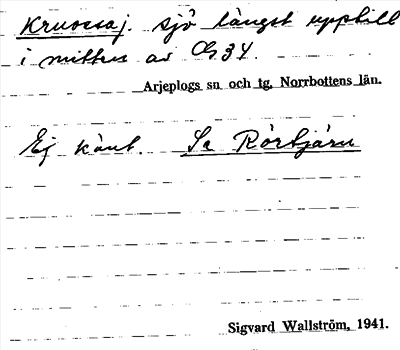 Kruossaj. sjö längst upptill
i mitten av G 34.
Arjeplogs sn och tg, Norrbottens län.
Ej känt. Se Rörtjärn
Sigvard Wallström, 1941.